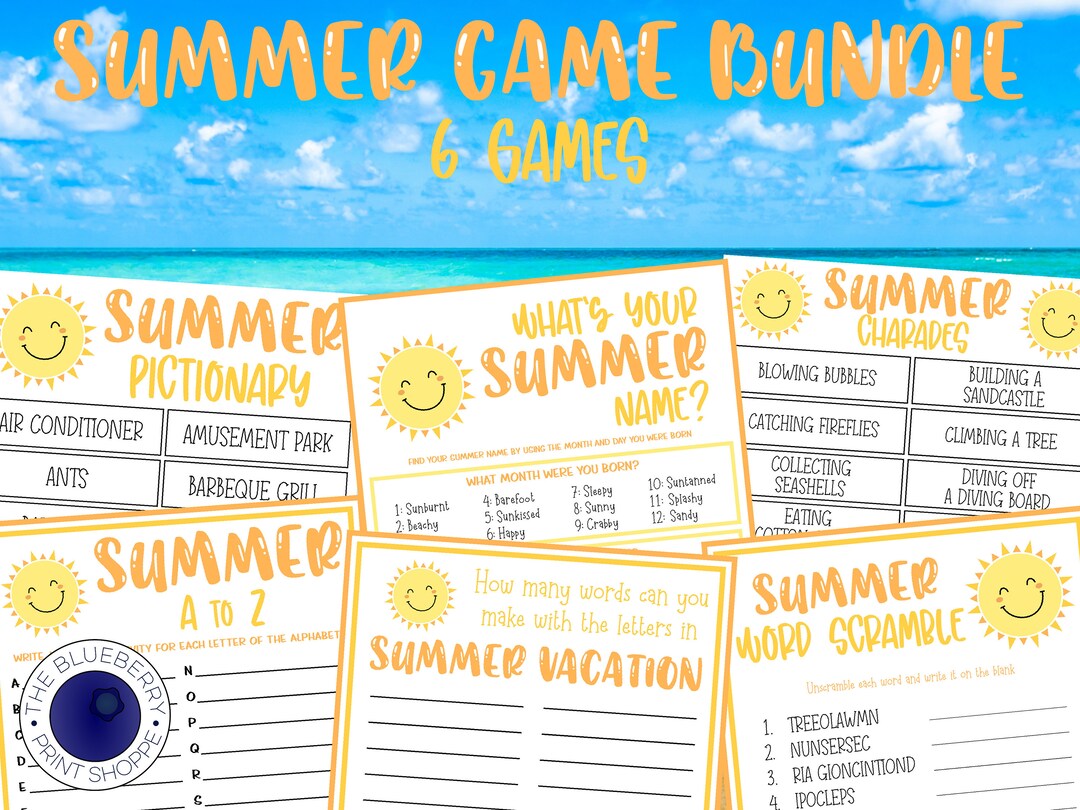 SUMMER GAME BUNDLE
6 GAMES
SUMMER
PICTIONARY
AIR CONDITIONER
AMUSEMENT PARK
ANTS
BARBEQUE GRILL
WHAT'S YOUR
SUMMER
NAME?
FIND YOUR SUMMER NAME BY USING THE MONTH AND DAY YOU WERE BORN
WHAT MONTH WERE YOU BORN?
1: Sunburnt
2: Beachy
4: Barefoot
5: Sunkissed
6: Happy
7: Sleepy
8: Sunny
9: Crabby
10: Suntanned
11: Splashy
12: Sandy
SUMMER
CHARADES
BLOWING BUBBLES
BUILDING A
SANDCASTLE
CATCHING FIREFLIES
CLIMBING A TREE
COLLECTING
SEASHELLS
DIVING OFF
A DIVING BOARD
EATING
SUMMER
A TO Z
WRITE
FOR EACH LETTER OF THE ALPHABET
A
B
C
D
E
N
O
P
Q
R
S
THE BLUEBERRY
PRINT SHOPPE
How many words can you
make with the letters in
SUMMER VACATION
SUMMER
WORD SCRAMBLE
Unscramble each word and write it on the blank
1. TREEOLAWMN
2. NUNSERSEC
3. RIA GIONCINTIOND
4. IPOCLEPS